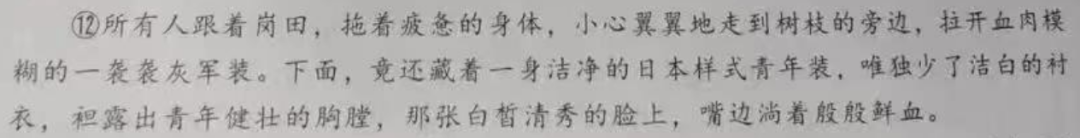 ⑫所有人跟着岗田，拖着疲惫的身体，小心翼翼地走到树枝的旁边，拉开血肉模
糊的一袭袭灰军装。下面，竟还藏着一身洁净的日本样式青年装，唯独少了洁白的衬
衣，袒露出青年健壮的胸膛，那张白皙清秀的脸上，嘴边淌着殷殷鲜血。